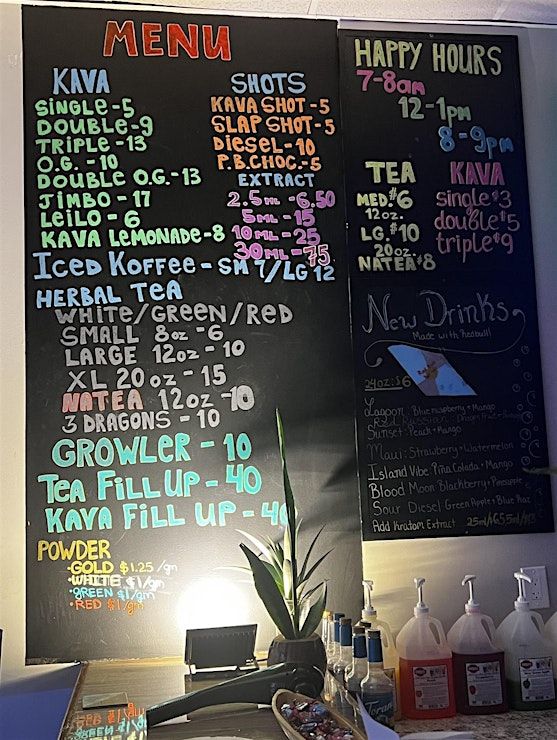 MENU
KAVA
SINGLE-5
DOUBLE-9
TRIPLE-13
O.G.-10
DOUBLE O.G.-13
JIMBO-17
LEILO-6
KAVA LEMONADE-8
SHOTS
KAVA SHOT-5
SLAP SHOT-5
DIESEL-10
P.B.CHOC.-5
EXTRACT
2.5ML-6.50
5ML-15
10ML-25
30ML-75
ICED KOFFEE-SM 7/LG 12
HERBAL TEA
WHITE/GREEN/RED
SMALL 8oz-6
LARGE 12oz-10
XL 20oz-15
NATEA 12oz-10
3 DRAGONS-10
GROWLER-10
TEA FILL UP-40
KAVA FILL UP-40
POWDER
·GOLD $1.25/gm
·WHITE $1/gm
·GREEN $1/gm
·RED $1/gm
HAPPY HOURS
7-8am
12-1pm
8-9pm
TEA
MED. $6
12oz.
LG. $10
20oz.
NATEA $8
KAVA
single $3
double $5
triple $9
New Drinks
Made with Redbull!
24oz: $6
Lagoon Blue raspberry+Mango
Sunset-Peach+Mango
Maui-Strawberry+Watermelon
Island Vibe Piña Colada+Mango
Blood Moon Blackberry+Pineapple
Sour Diesel Green Apple+Blue Razz
Add Kratom Extract